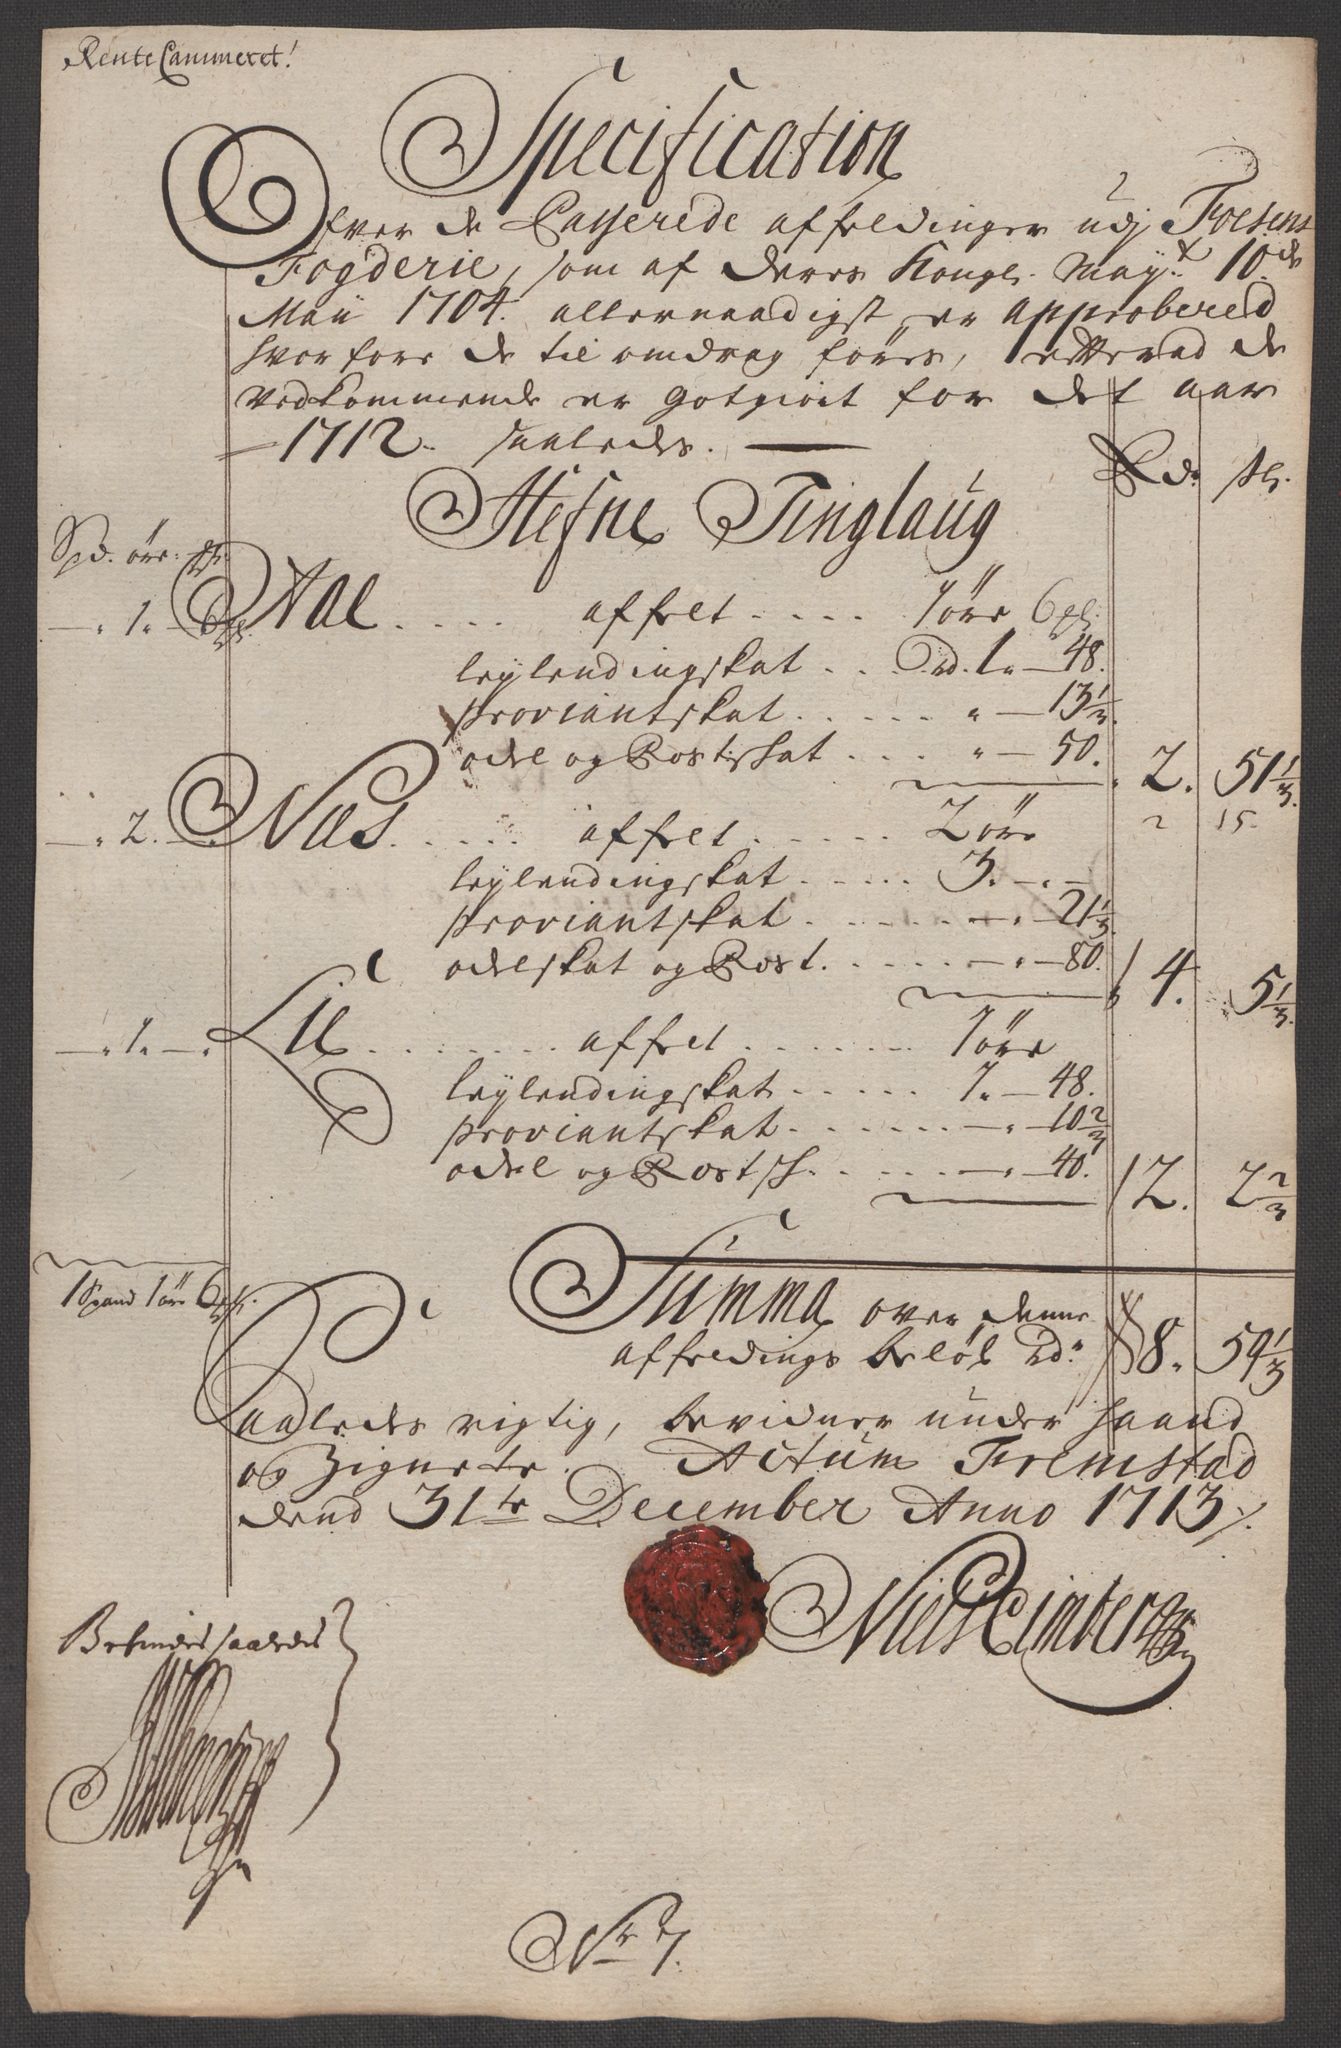 Rente Cammeret!
Specification
Ofver de Casserede affeldinger udj Foesens
Fogderie, som af deres Kongl. May.t 10.de
Maii 1704. allernaadigst er approbered
hvorfore de til omdrag føres, efterved de
vedkommende er gotgiort for det aar
1712. saaledes.
Rd. sk.
Hefne Tinglaug
Spd. øre. pl.
1. 6pl. Aae .... affelt .... 1 øre 6 pl.
leylendingskat ... Rd. 1. 48.
proviantskat ..... " 13 1/3.
odel og Rostskat .... " 50. 2. 51 1/3.
2 15.
2. Næs ..... affelt ...... 2 øre
leylendingskat ..... 3. " -
proviantskat ...... " 21 1/3.
odelskat og Rost. ..... " 80. 4. 5 1/3.
1. Lie ....... affelt ....... 1 øre
leylendingskat ..... 1. 48.
proviantskat ...... " 10 2/3
odel og Rostsk. ..... " 40. 2. 2 2/3
1 Spand 1 øre 6 pl. Summa over denne
affeldings beløb Rd. 8. 59 1/3
Saaledes rigtig, bevidner under haand
og Zignete. Actum Fremstad
dend 31te December Anno 1713 /.
Niels Cimber
Befindes saaledes
No 7.